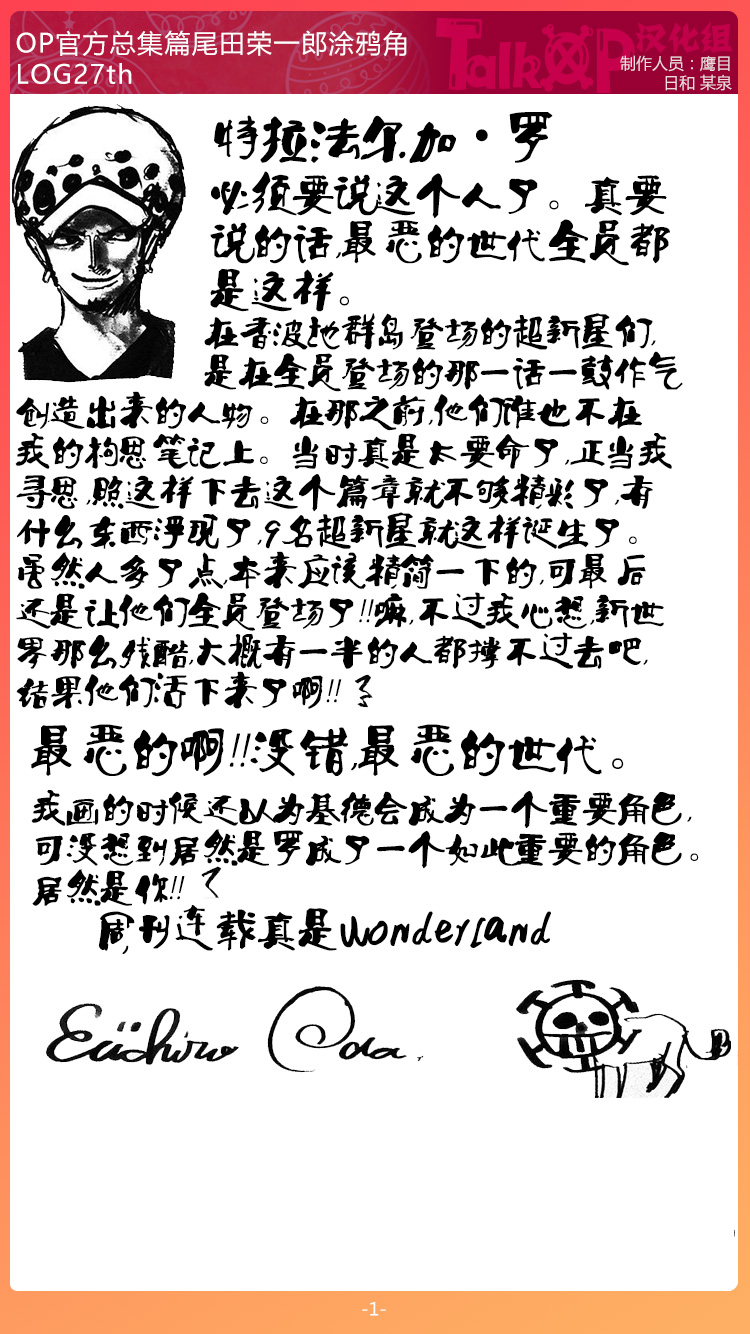 OP官方总集篇尾田荣一郎涂鸦角
LOG27th
TalkOP汉化组
制作人员：鹰目
日和 某泉
特拉法尔加·罗
必须要说这个人了。真要
说的话,最恶的世代全员都
是这样。
在香波地群岛登场的超新星们,
是在全员登场的那一话一鼓作气
创造出来的人物。在那之前,他们谁也不在
我的构思笔记上。当时真是太要命了,正当我
寻思,照这样下去这个篇章就不够精彩了,有
什么东西浮现了,9名超新星就这样诞生了。
虽然人多了点本来应该精简一下的,可最后
还是让他们全员登场了!!嘛,不过我心想,新世
界那么残酷,大概有一半的人都撑不过去吧,
结果他们活下来了啊!!了
最恶的啊!!没错,最恶的世代。
我画的时候还以为基德会成为一个重要角色,
可没想到居然是罗成了一个如此重要的角色。
居然是你!!了
周刊连载真是Wonderland
Eiichiro Oda.
-1-